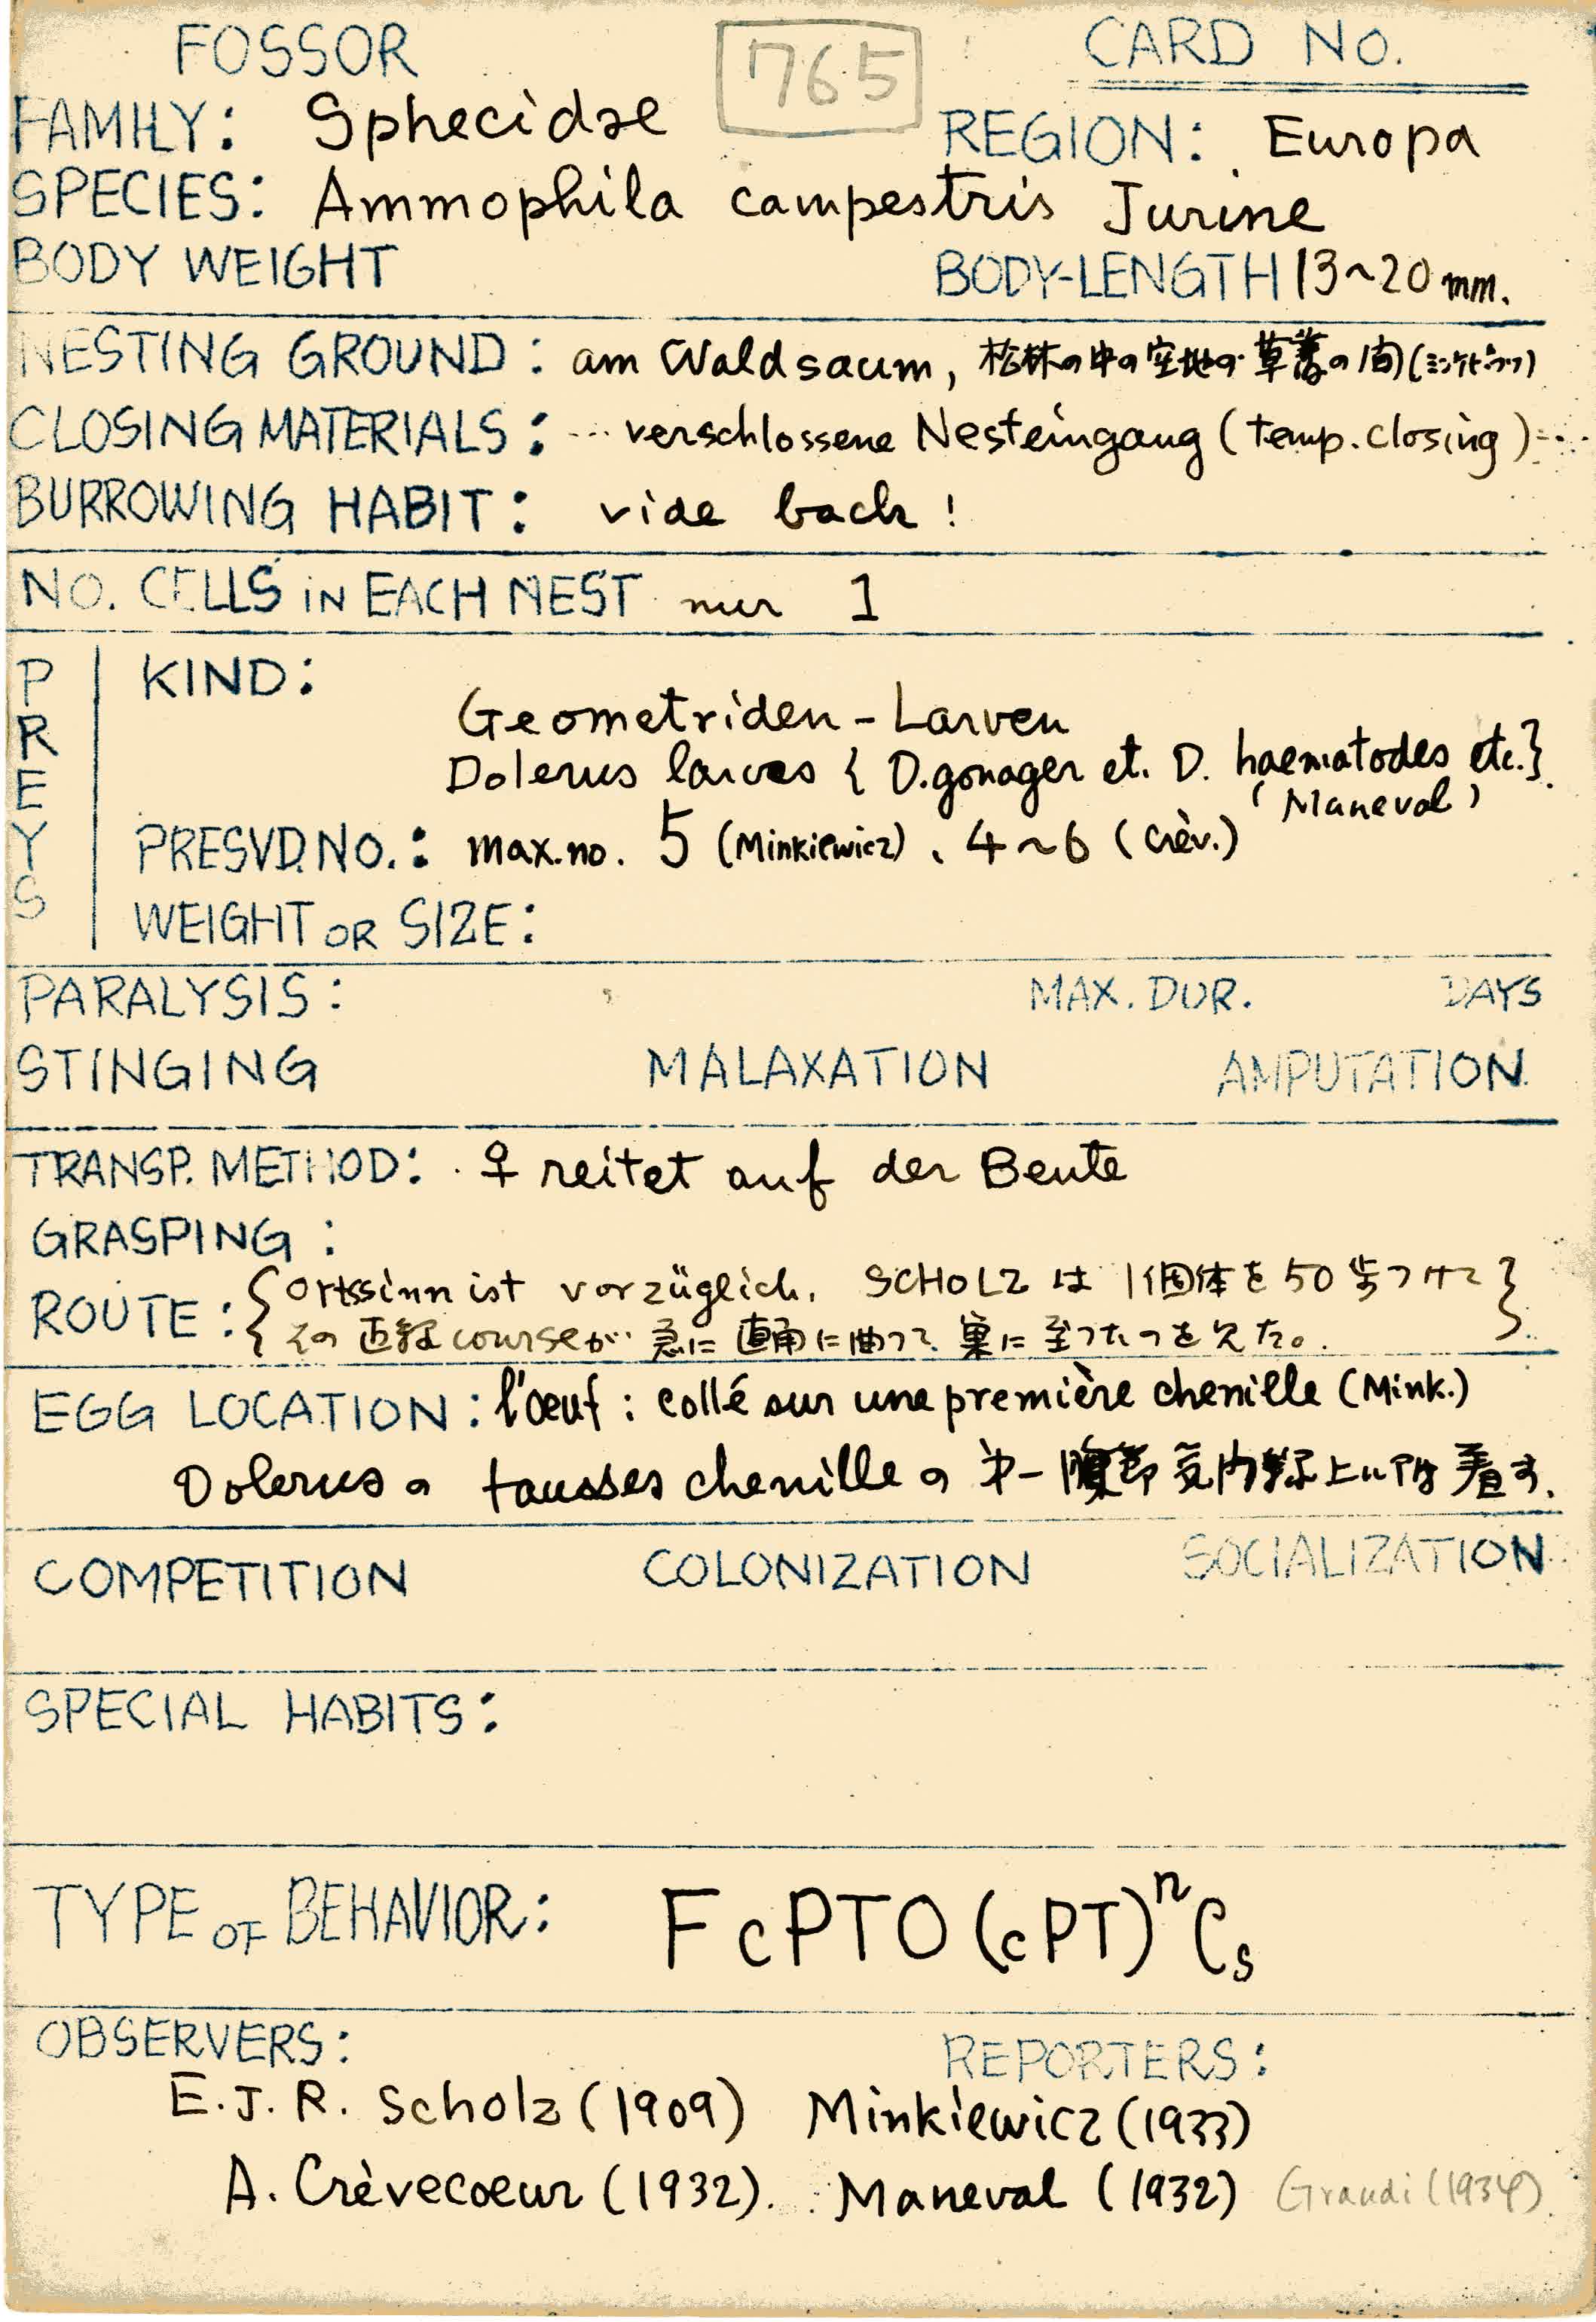 FOSSOR 765 CARD NO.
FAMILY: Sphecidae REGION: Europa
SPECIES: Ammophila campestris Jurine
BODY WEIGHT BODY-LENGTH 13~20 mm.
NESTING GROUND: am Waldsaum, 松林の中の空地の草叢の間(ミンキビッツ)
CLOSING MATERIALS: ...verschlossene Nesteingang (temp. closing)...
BURROWING HABIT: vide back!
NO. CELLS IN EACH NEST nur 1
PREYS
KIND:
Geometriden-Larven
Dolerus larves { D. gonager et. D. haematodes etc.}
(Maneval)
PRESVD. NO.: max. no. 5 (Minkiewicz), 4~6 (Crèv.)
WEIGHT OR SIZE:
PARALYSIS: MAX. DUR. DAYS
STINGING MALAXATION AMPUTATION
TRANSP. METHOD: ♀ reitet auf der Beute
GRASPING:
ROUTE: {Ortssinn ist vorzüglich. SCHOLZ は 1個体を50歩つけて
その直線courseが急に直角に曲って、巣に至ったのを見た。}
EGG LOCATION: l'œuf: collé sur une première chenille (Mink.)
Dolerus の fausses chenille の 第一腹節 上に附着す.
COMPETITION COLONIZATION SOCIALIZATION
SPECIAL HABITS:
TYPE OF BEHAVIOR: FcPTO(cPT)ⁿCs
OBSERVERS: REPORTERS:
E.J.R. Scholz (1909) Minkiewicz (1933)
A. Crèvecoeur (1932). Maneval (1932) Grandi (1934)